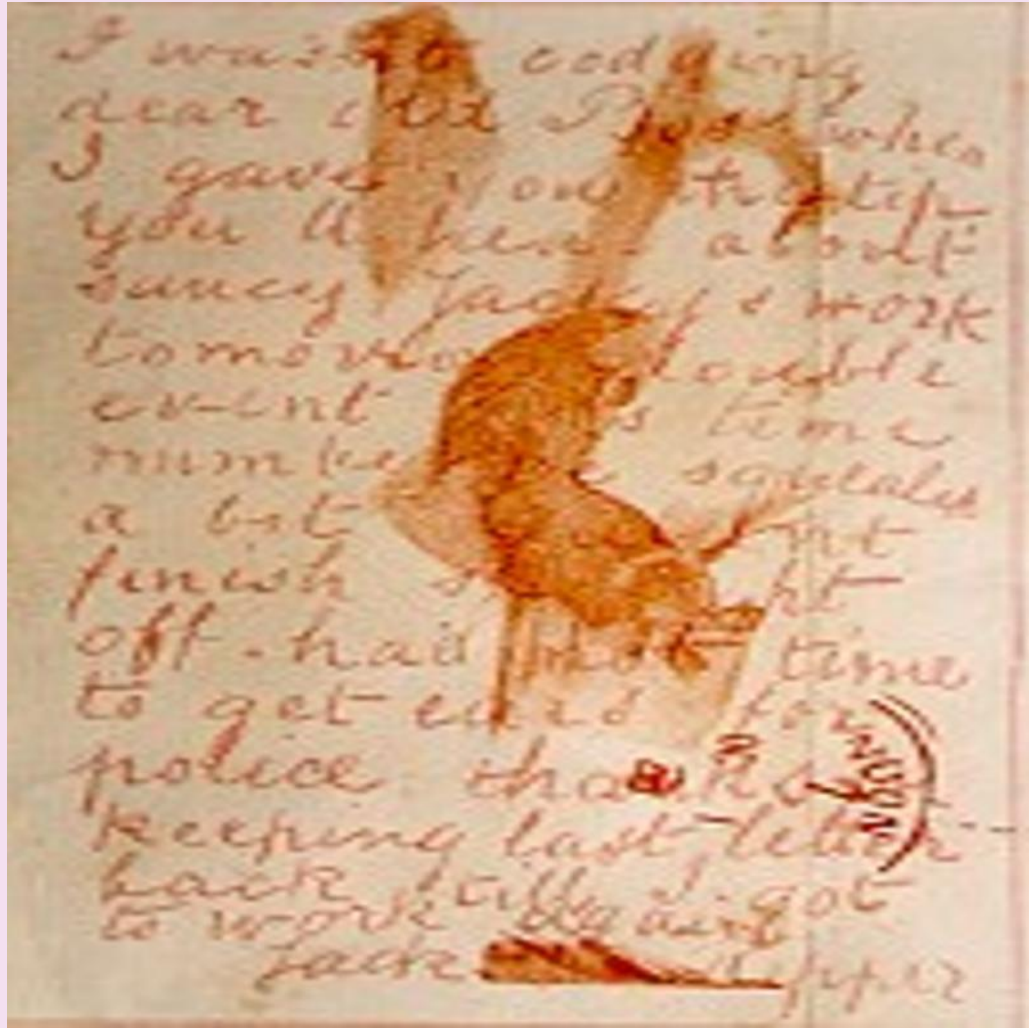 I was not codding
dear old Boss when
I gave you the tip,
you'll hear about
saucy Jacky s work
tomorrow double
event this time
number one squealed
a bit couldnt
finish straight
off. had not time
to get ears for
police thanks for
keeping last letter
back till I got
to work again.
Jack the Ripper